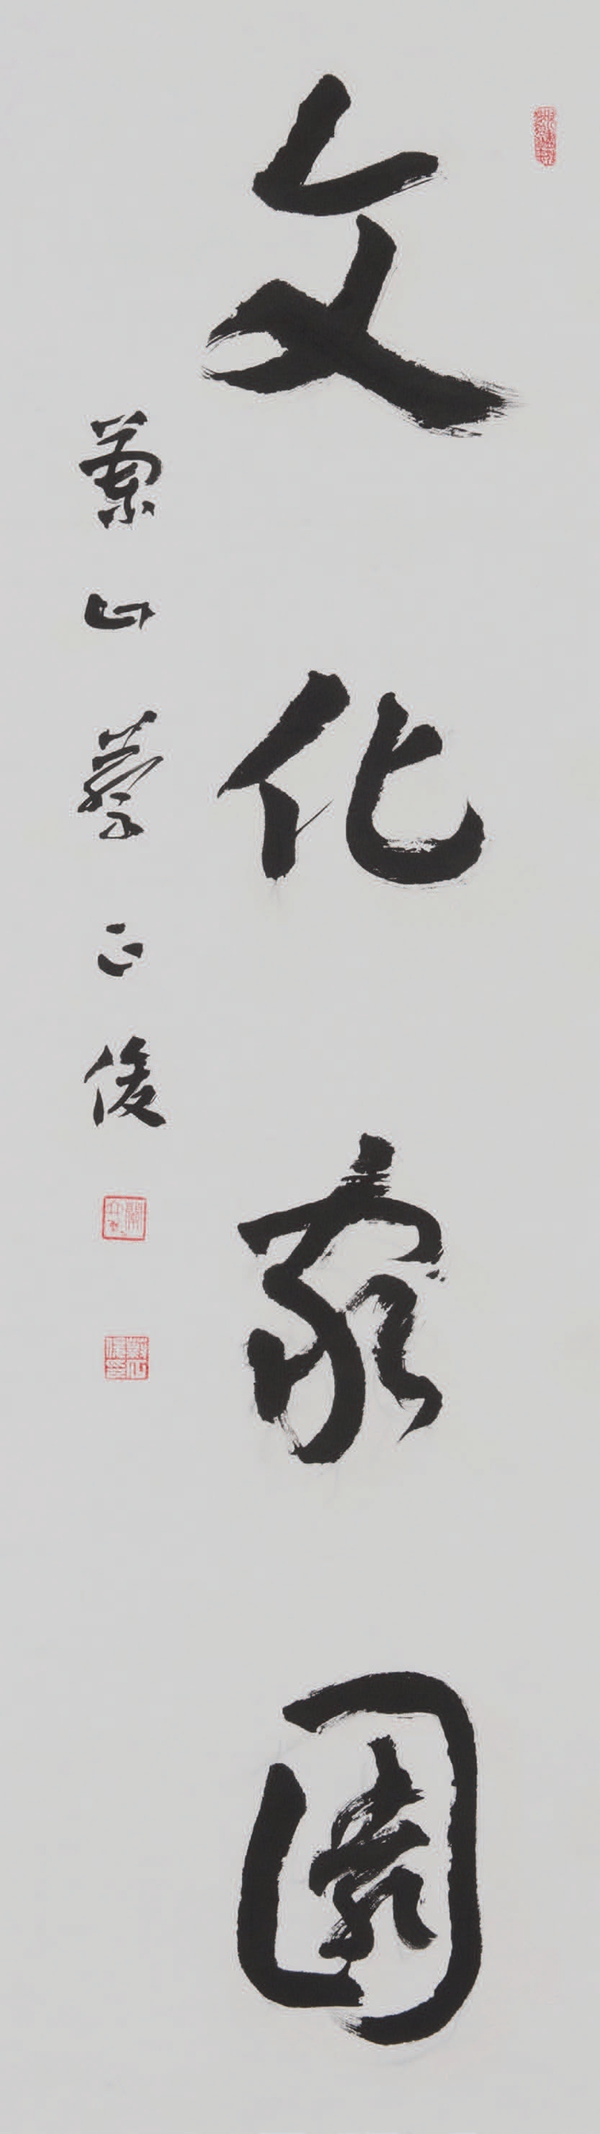 文化家園
蘭山蔡正俊